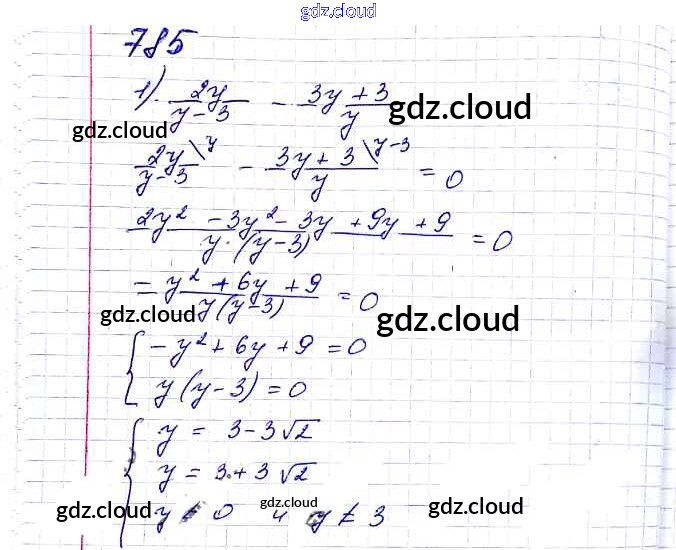 gdz.cloud
785
1). 2y/(y-3) - (3y+3)/y gdz.cloud
gdz.cloud
2y/(y-3) \y - (3y+3)/y \y-3 = 0
(2y² - 3y² - 3y + 9y + 9)/(y·(y-3)) = 0
= (y² + 6y + 9)/(y(y-3)) = 0
gdz.cloud gdz.cloud
{ -y² + 6y + 9 = 0
y(y-3) = 0
{ y = 3 - 3√2
y = 3 + 3√2
y ≠ 0 и y ≠ 3
gdz.cloud gdz.cloud gdz.cloud